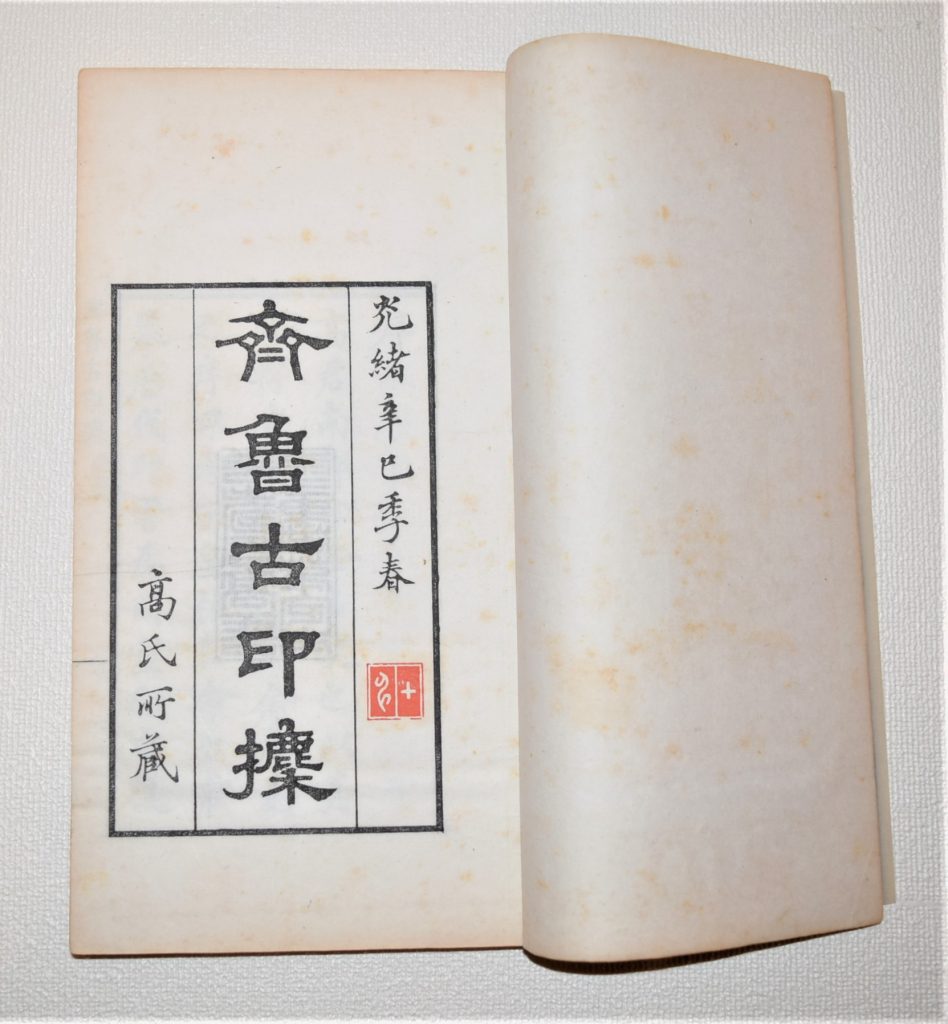 光緒辛巳季春
齊魯古印攈
高氏所藏